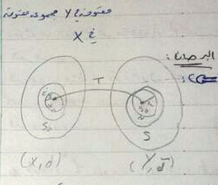 مفتوحة في Y مجموعة مفتوحة
في X
البرهان:
T
S₀
S
(X, d)
(Y, d̄)